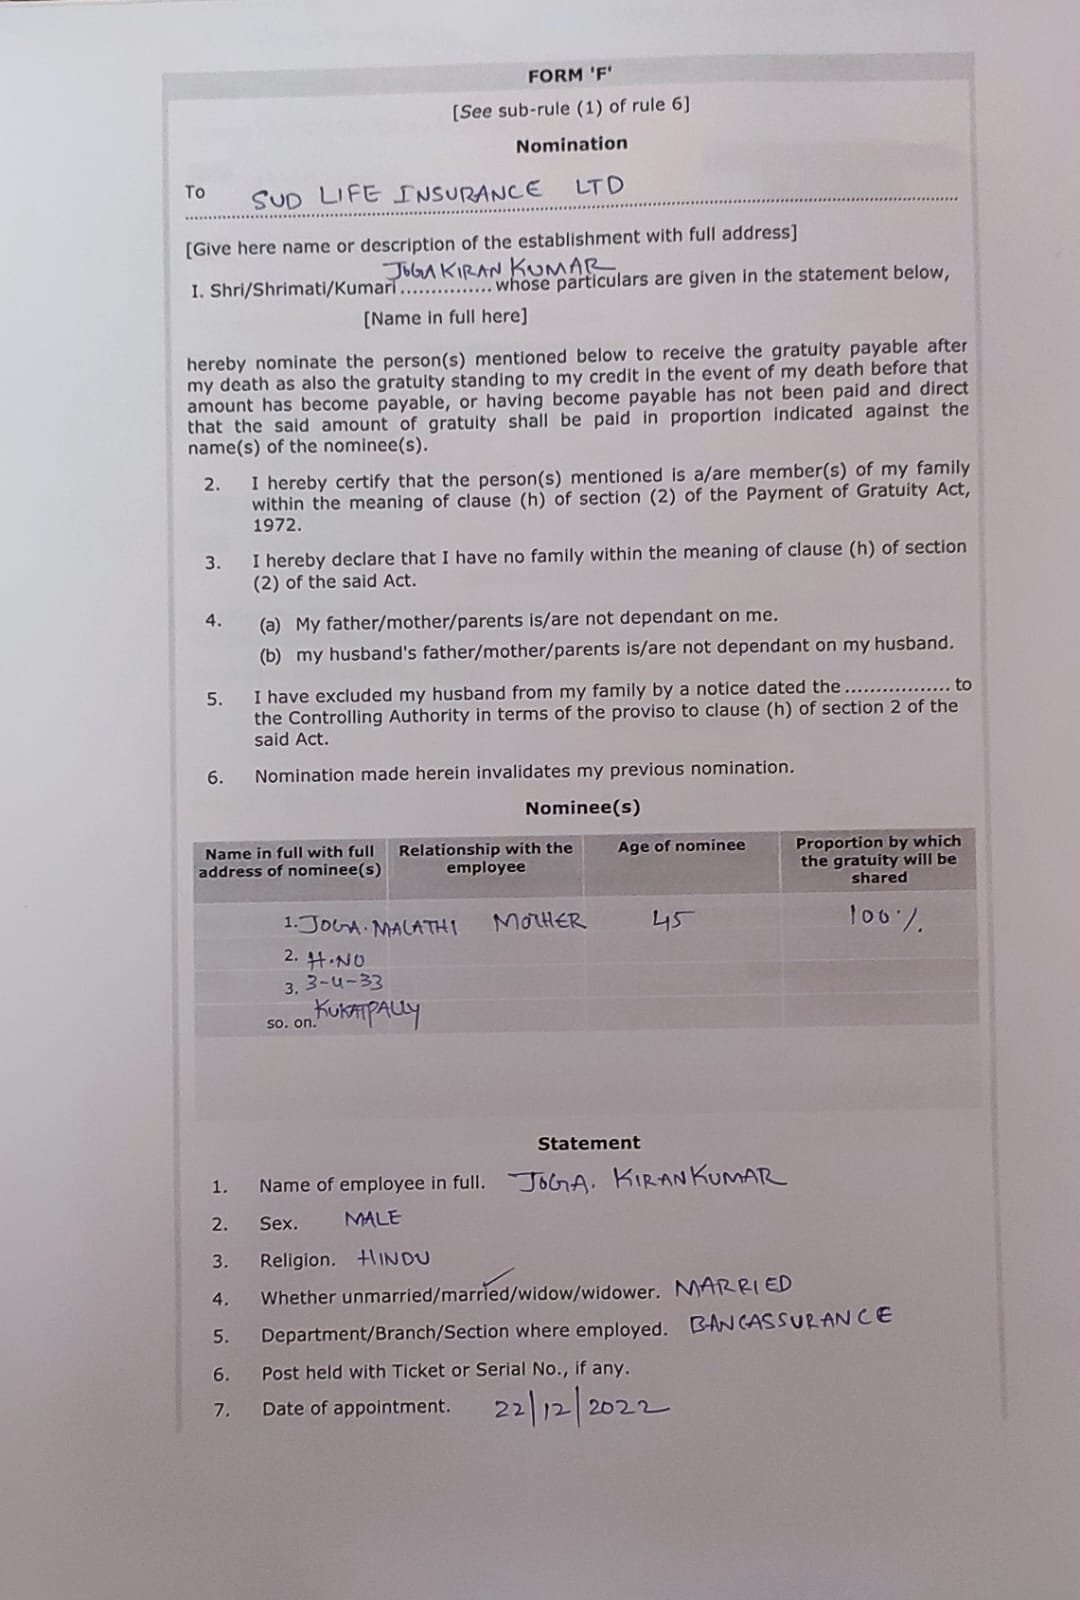 FORM 'F'
[See sub-rule (1) of rule 6]
Nomination
To SUD LIFE INSURANCE LTD
[Give here name or description of the establishment with full address]
JOGA KIRAN KUMAR
I. Shri/Shrimati/Kumari............... whose particulars are given in the statement below,
[Name in full here]
hereby nominate the person(s) mentioned below to receive the gratuity payable after
my death as also the gratuity standing to my credit in the event of my death before that
amount has become payable, or having become payable has not been paid and direct
that the said amount of gratuity shall be paid in proportion indicated against the
name(s) of the nominee(s).
2. I hereby certify that the person(s) mentioned is a/are member(s) of my family
within the meaning of clause (h) of section (2) of the Payment of Gratuity Act,
1972.
3. I hereby declare that I have no family within the meaning of clause (h) of section
(2) of the said Act.
4. (a) My father/mother/parents is/are not dependant on me.
(b) my husband's father/mother/parents is/are not dependant on my husband.
5. I have excluded my husband from my family by a notice dated the................. to
the Controlling Authority in terms of the proviso to clause (h) of section 2 of the
said Act.
6. Nomination made herein invalidates my previous nomination.
Nominee(s)
Name in full with full address of nominee(s) Relationship with the employee Age of nominee Proportion by which the gratuity will be shared
1. JOGA. MALATHI MOTHER 45 100%
2. H.NO
3. 3-4-33
so. on. KUKATPALLY
Statement
1. Name of employee in full. JOGA. KIRAN KUMAR
2. Sex. MALE
3. Religion. HINDU
4. Whether unmarried/married/widow/widower. MARRIED
5. Department/Branch/Section where employed. BANCASSURANCE
6. Post held with Ticket or Serial No., if any.
7. Date of appointment. 22/12/2022